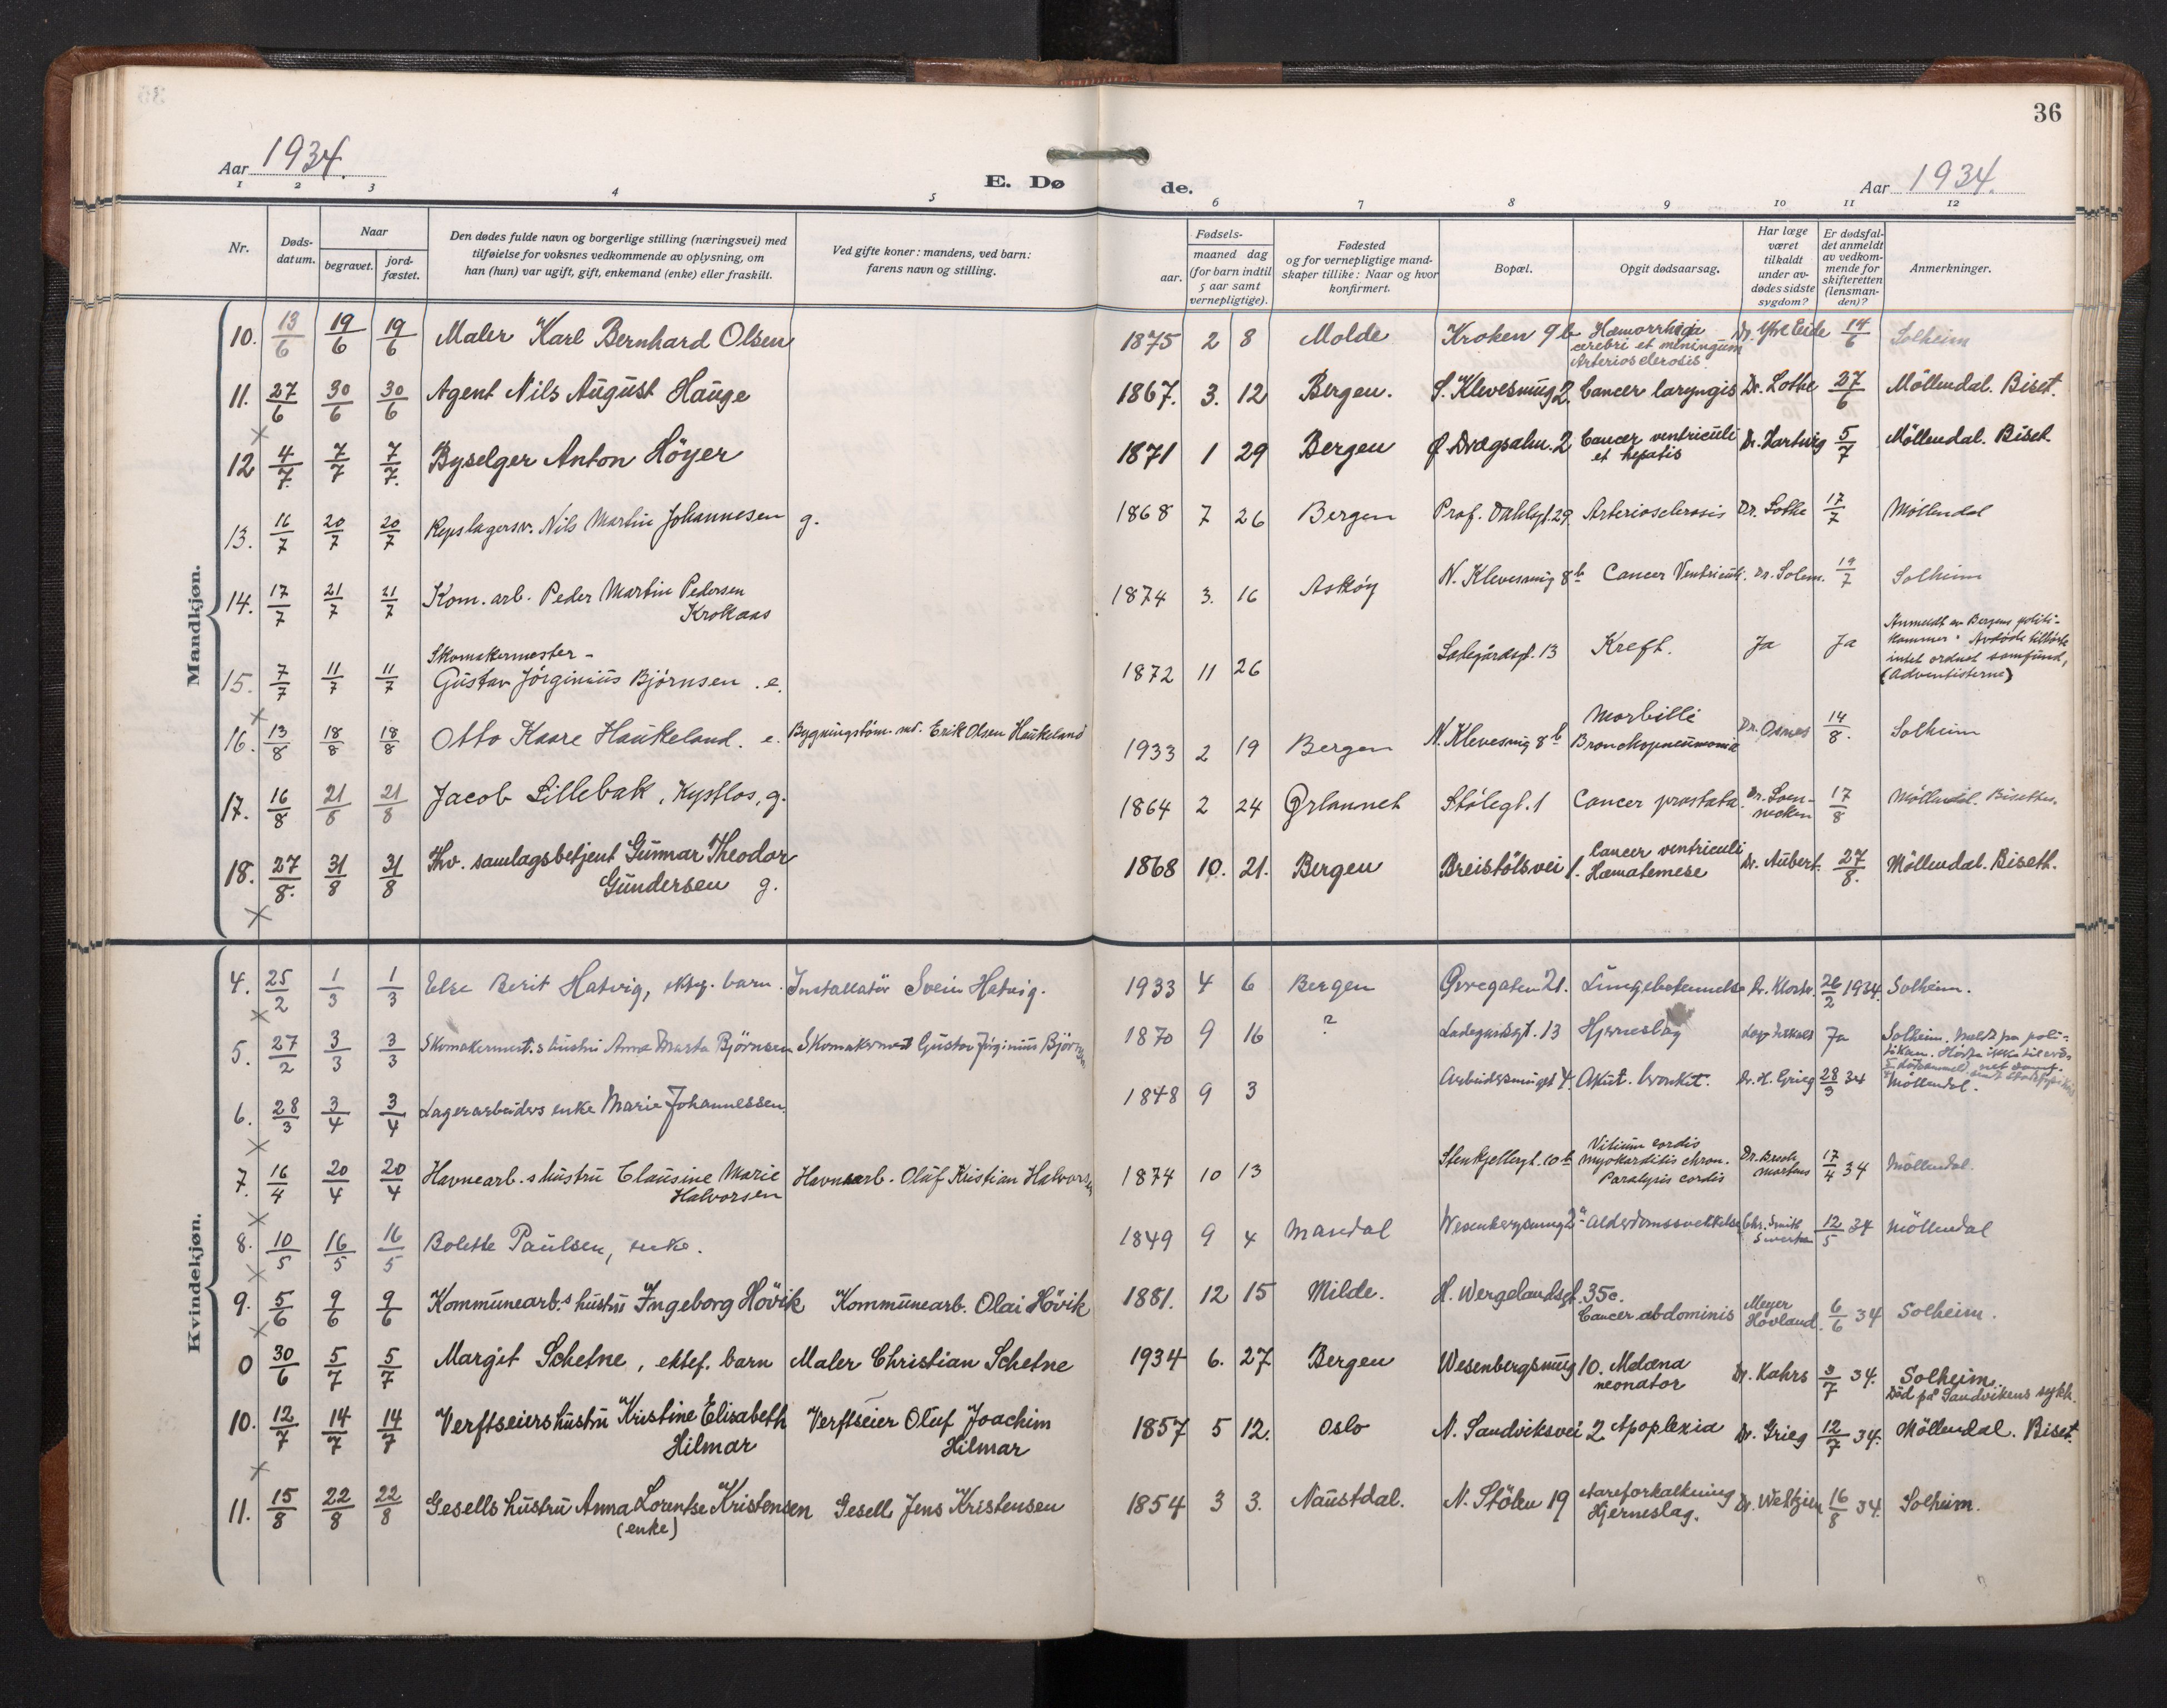 36
Aar 1934. E. Dø de. Aar 1934.
1 2 3 4 5 6 7 8 9 10 11 12
Nr.
Døds-
datum.
Naar
begravet.
jord-
fæstet.
Den dødes fulde navn og borgerlige stilling (næringsvei) med
tilføielse for voksnes vedkommende av oplysning, om
han (hun) var ugift, gift, enkemand (enke) eller fraskilt.
Ved gifte koner: mandens, ved barn:
farens navn og stilling.
Fødsels-
aar.
maaned dag
(for barn indtil
5 aar samt
vernepligtige).
Fødested
og for vernepligtige mand-
skaper tillike: Naar og hvor
konfirmert.
Bopæl.
Opgit dødsaarsag.
Har læge
været
tilkaldt
under av-
dødes sidste
sygdom?
Er dødsfal-
det anmeldt
av vedkom-
mende for
skifteretten
(lensman-
den)?
Anmerkninger.
Mandkjøn.
10. 13/6 19/6 19/6 Maler Karl Bernhard Olsen 1875 2 8 Molde Kroken 9b Hæmorrhagia cerebri et meningum Arteriosclerosis Dr. Eide 14/6 Solheim
11. 27/6 30/6 30/6 Agent Nils August Hauge 1867. 3. 12 Bergen. S. Klevesmug 2. Cancer laryngis Dr. Lothe 27/6 Möllendal. Biset.
12 4/7. 7/7 7/7. Byselger Anton Höyer 1871 1 29 Bergen Ø. Dregsalm. 2 Cancer ventriculi et hepatis Dr. Hartwig 5/7 Möllendal. Biset.
13. 16/7 20/7 20/7 Repslagersv. Nils Martin Johannesen g. 1868 7 26 Bergen Prof. Dahlsgt. 29. Arteriosclerosis Dr. Lothe 17/7 Möllendal
14. 17/7 21/7 21/7 Kom. arb. Peder Martin Pedersen Krokaas 1874 3. 16 Askøy N. Klevesmug 8b Cancer Ventriculi. Dr. Solem. 19/7 Solheim
15. 7/7 11/7 11/7 Skomakermester - Gustav Jörginius Björnsen . e. 1872 11 26 Ladegårdsgt. 13 Kreft. Ja Ja Anmeldt av Bergens politi-
kammer. Avdøde tilhørte
intet ordnet samfund,
(Adventisterne)
16. 13/8 18/8 18/8 Otto Kaare Haukeland. e. Bygningstöm. Erik Olsen Haukeland 1933 2 19 Bergen N. Klevesmug 8b Morbilli Bronchopneumonie Dr. Osnes 14/8. Solheim
17. 16/8 21/8 21/8 Jacob Lillebak, Kystlos, g. 1864 2 24 Ørlannet Stölegt. 1 Cancer prostata. Dr. 17/8 Möllendal. Bisettes.
18. 27/8. 31/8 31/8 Fhv. samlagsbetjent Gunnar Theodor Gundersen g. 1868 10. 21. Bergen Breistölsvei 1. Cancer ventriculi Hæmatemese Dr. Aubert. 27/8. Möllendal. Biseth.
Kvindekjøn.
4. 25/2 1/3 1/3 Else Berit Hatvig, barn. Installatör Svein Hatvig. 1933 4 6 Bergen Øvregaten 21. Lungebetennelse Dr. Kloster 26/2 1934. Solheim.
5. 27/2 3/3 3/3 Skomakermest.s hustru Anna Marta Björnsen Skomakermest Gustav Jörginius Björnsen 1870 9 16 ? Ladegaardsgt. 13 Hjerneslag Ja Solheim. Meldt fra poli-
6. 28/3 3/4 3/4 Lagerarbeiders enke Marie Johannessen. 1848 9 3 Arbeidersmuget 4. Akut. bronkit. Dr. H. Grieg 28/3 34 Möllendal.
7. 16/4 20/4 20/4 Havnearb.s hustru Clausine Marie Halvorsen Havnearb. Oluf Kristian Halvorsen 1874 10 13 Stenkjellergt. 10b Vitium cordis myokarditis chron. Paralysis cordis Dr. Martens 17/4 34 Möllendal.
8. 10/5 16/5 16/5 Bolette Paulsen, enke. 1849 9 4 Mandal Wesenbergsmug 2a Alderdomssvekkelse Chr. Smith Sivertsen 12/5 34 Möllendal
9. 5/6 9/6 9/6 Kommunearb.s hustru Ingeborg Hövik Kommunearb. Olai Hövik 1881. 12 15 Milde. H. Wergelandsgt. 35c. Cancer abdominis Meyer Hovland. 6/6 34 Solheim.
0 30/6 5/7 5/7 Margit Schetne, ektef. barn Maler Christian Schetne 1934 6. 27 Bergen Wesenbergsmug 10. Melæna neonator Dr. Kahrs 3/7 34. Solheim.
Död på Sandvikens sykh.
10. 12/7 14/7 14/7 Verftseiers hustru Kristine Elisabeth Hilmar Verftseier Oluf Joachim Hilmar 1857 5 12. Oslo N. Sandviksvei 2 Apoplexia Dr. Grieg 12/7 34. Möllendal. Biset.
11. 15/8 22/8 22/8 Gesells hustru Anna Lorentse Kristensen (enke) Gesell Jens Kristensen 1854 3 3. Naustdal. N. Stölen 19 Aareforkalkning Hjerneslag. Dr. Weltzien 16/8 34. Solheim.